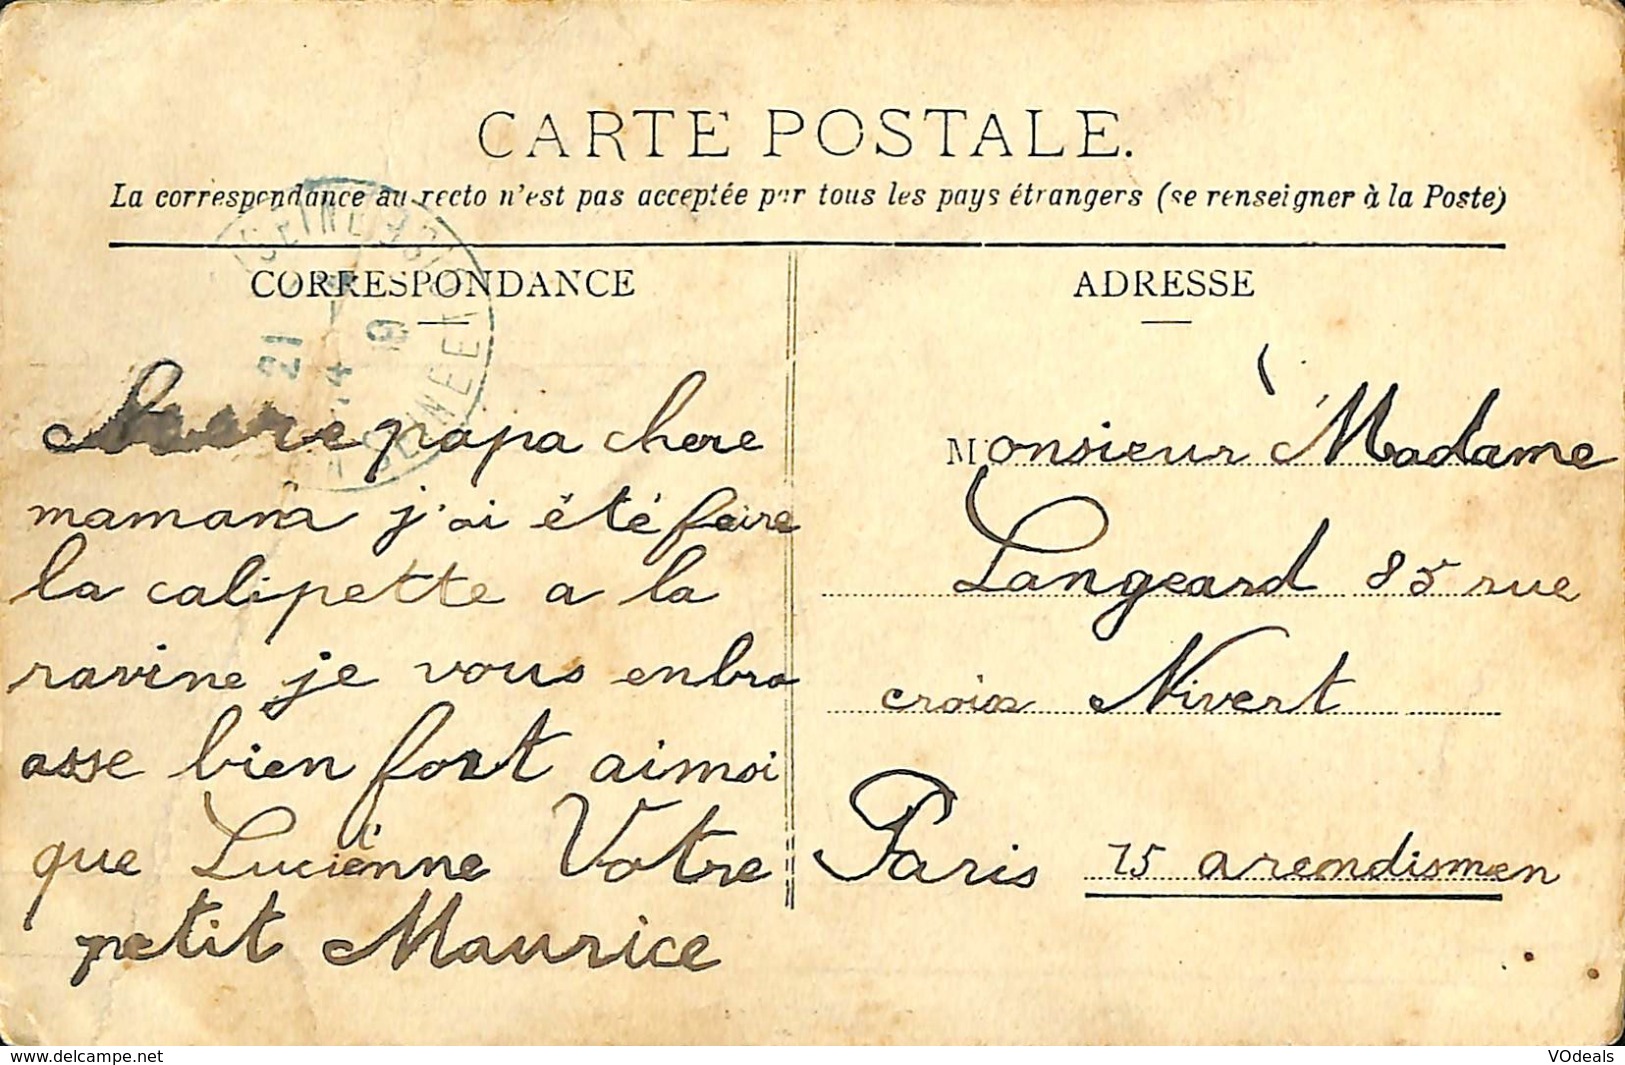 CARTE POSTALE.
La correspondance au recto n'est pas acceptée par tous les pays étrangers (se renseigner à la Poste)
CORRESPONDANCE
21
19
papa chere
mamana j'ai été faire
la calipette a la
ravine je vous enbra
asse bien fort aimoi
que Lucienne Votre
petit Maurice
ADRESSE
Monsieur Madame
Langeard 85 rue
croix Nivert
Paris 15 arendismen
www.delcampe.net
VOdeals